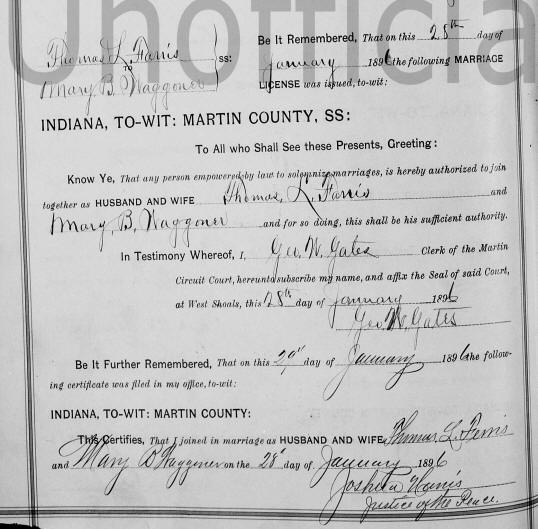 Unofficial
Be It Remembered, That on this 28th day of
Thomas L. Farris
TO
SS:
January 1896 the following MARRIAGE
Mary B. Waggoner
LICENSE was issued, to-wit:
INDIANA, TO-WIT: MARTIN COUNTY, SS:
To All who Shall See these Presents, Greeting:
Know Ye, That any person empowered by law to solemnize marriages, is hereby authorized to join
together as HUSBAND AND WIFE Thomas L. Farris and
Mary B. Waggoner and for so doing, this shall be his sufficient authority.
In Testimony Whereof, I, Geo. W. Gates Clerk of the Martin
Circuit Court, hereunto subscribe my name, and affix the Seal of said Court,
at West Shoals, this 28th day of January 1896
Geo. W. Gates
Be It Further Remembered, That on this 29" day of January 1896 the follow-
ing certificate was filed in my office, to-wit:
INDIANA, TO-WIT: MARTIN COUNTY:
This Certifies, That I joined in marriage as HUSBAND AND WIFE, Thomas L. Farris
and Mary B Waggoner on the 28" day of January 1896
Joshua Harris
Justice of the Peace.